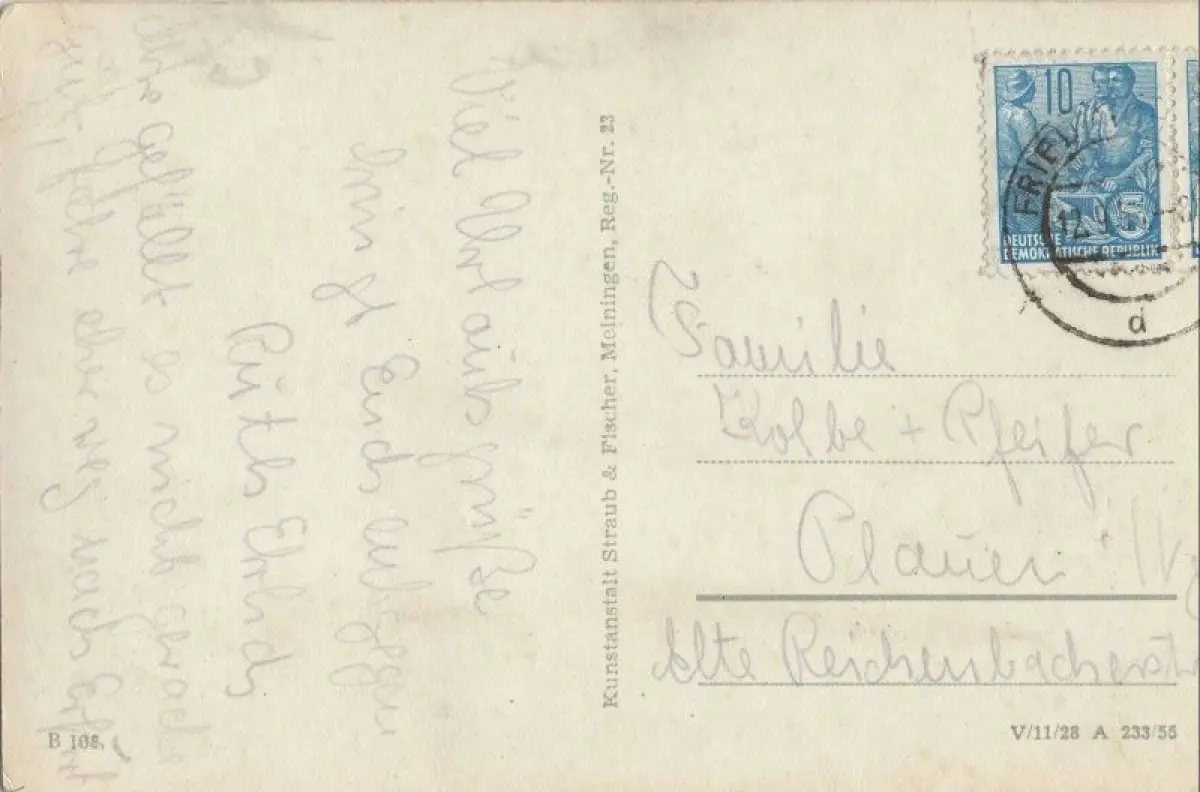 Viel Urlaubsgrüße
bringt Euch entgegen
Ruth
Hier gefällt es nicht gerade
gut, fahre aber weg nach Erfurt
Kunstanstalt Straub & Fischer, Meiningen, Reg.-Nr. 23
10
DEUTSCHE
DEMOKRATISCHE REPUBLIK
5
FRIED
12.9.
d
Familie
Kolbe + Pfeifer
Plauen
Alte Reichenbacherstr
B 108.
V/11/28 A 233/55